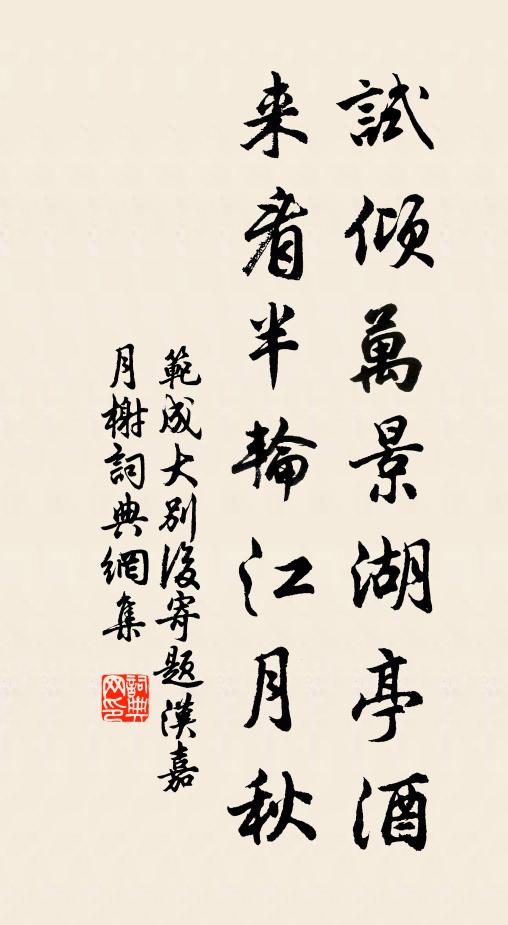 試傾萬景湖亭酒
来看半輪江月秋
範成大別後寄題漢嘉
月榭詞典網集
詞典
网印